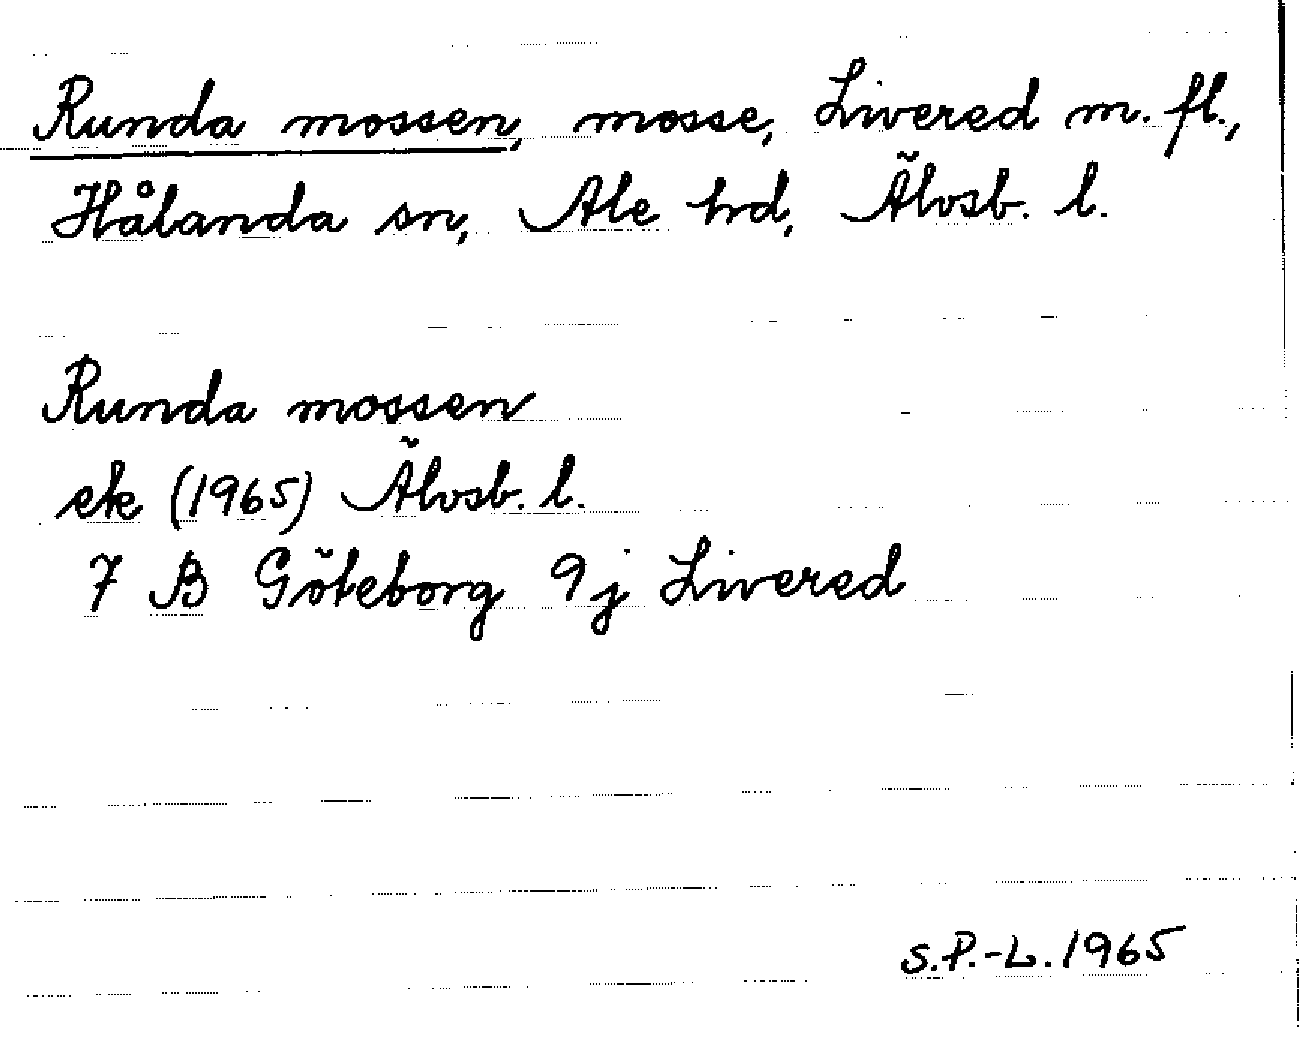 Runda mossen, mosse, Livered m. fl.,
Hålanda sn, Ale hrd, Älvsb. l.
Runda mossen
ek (1965) Älvsb. l.
7 B Göteborg 9j Livered
S.P.-L. 1965